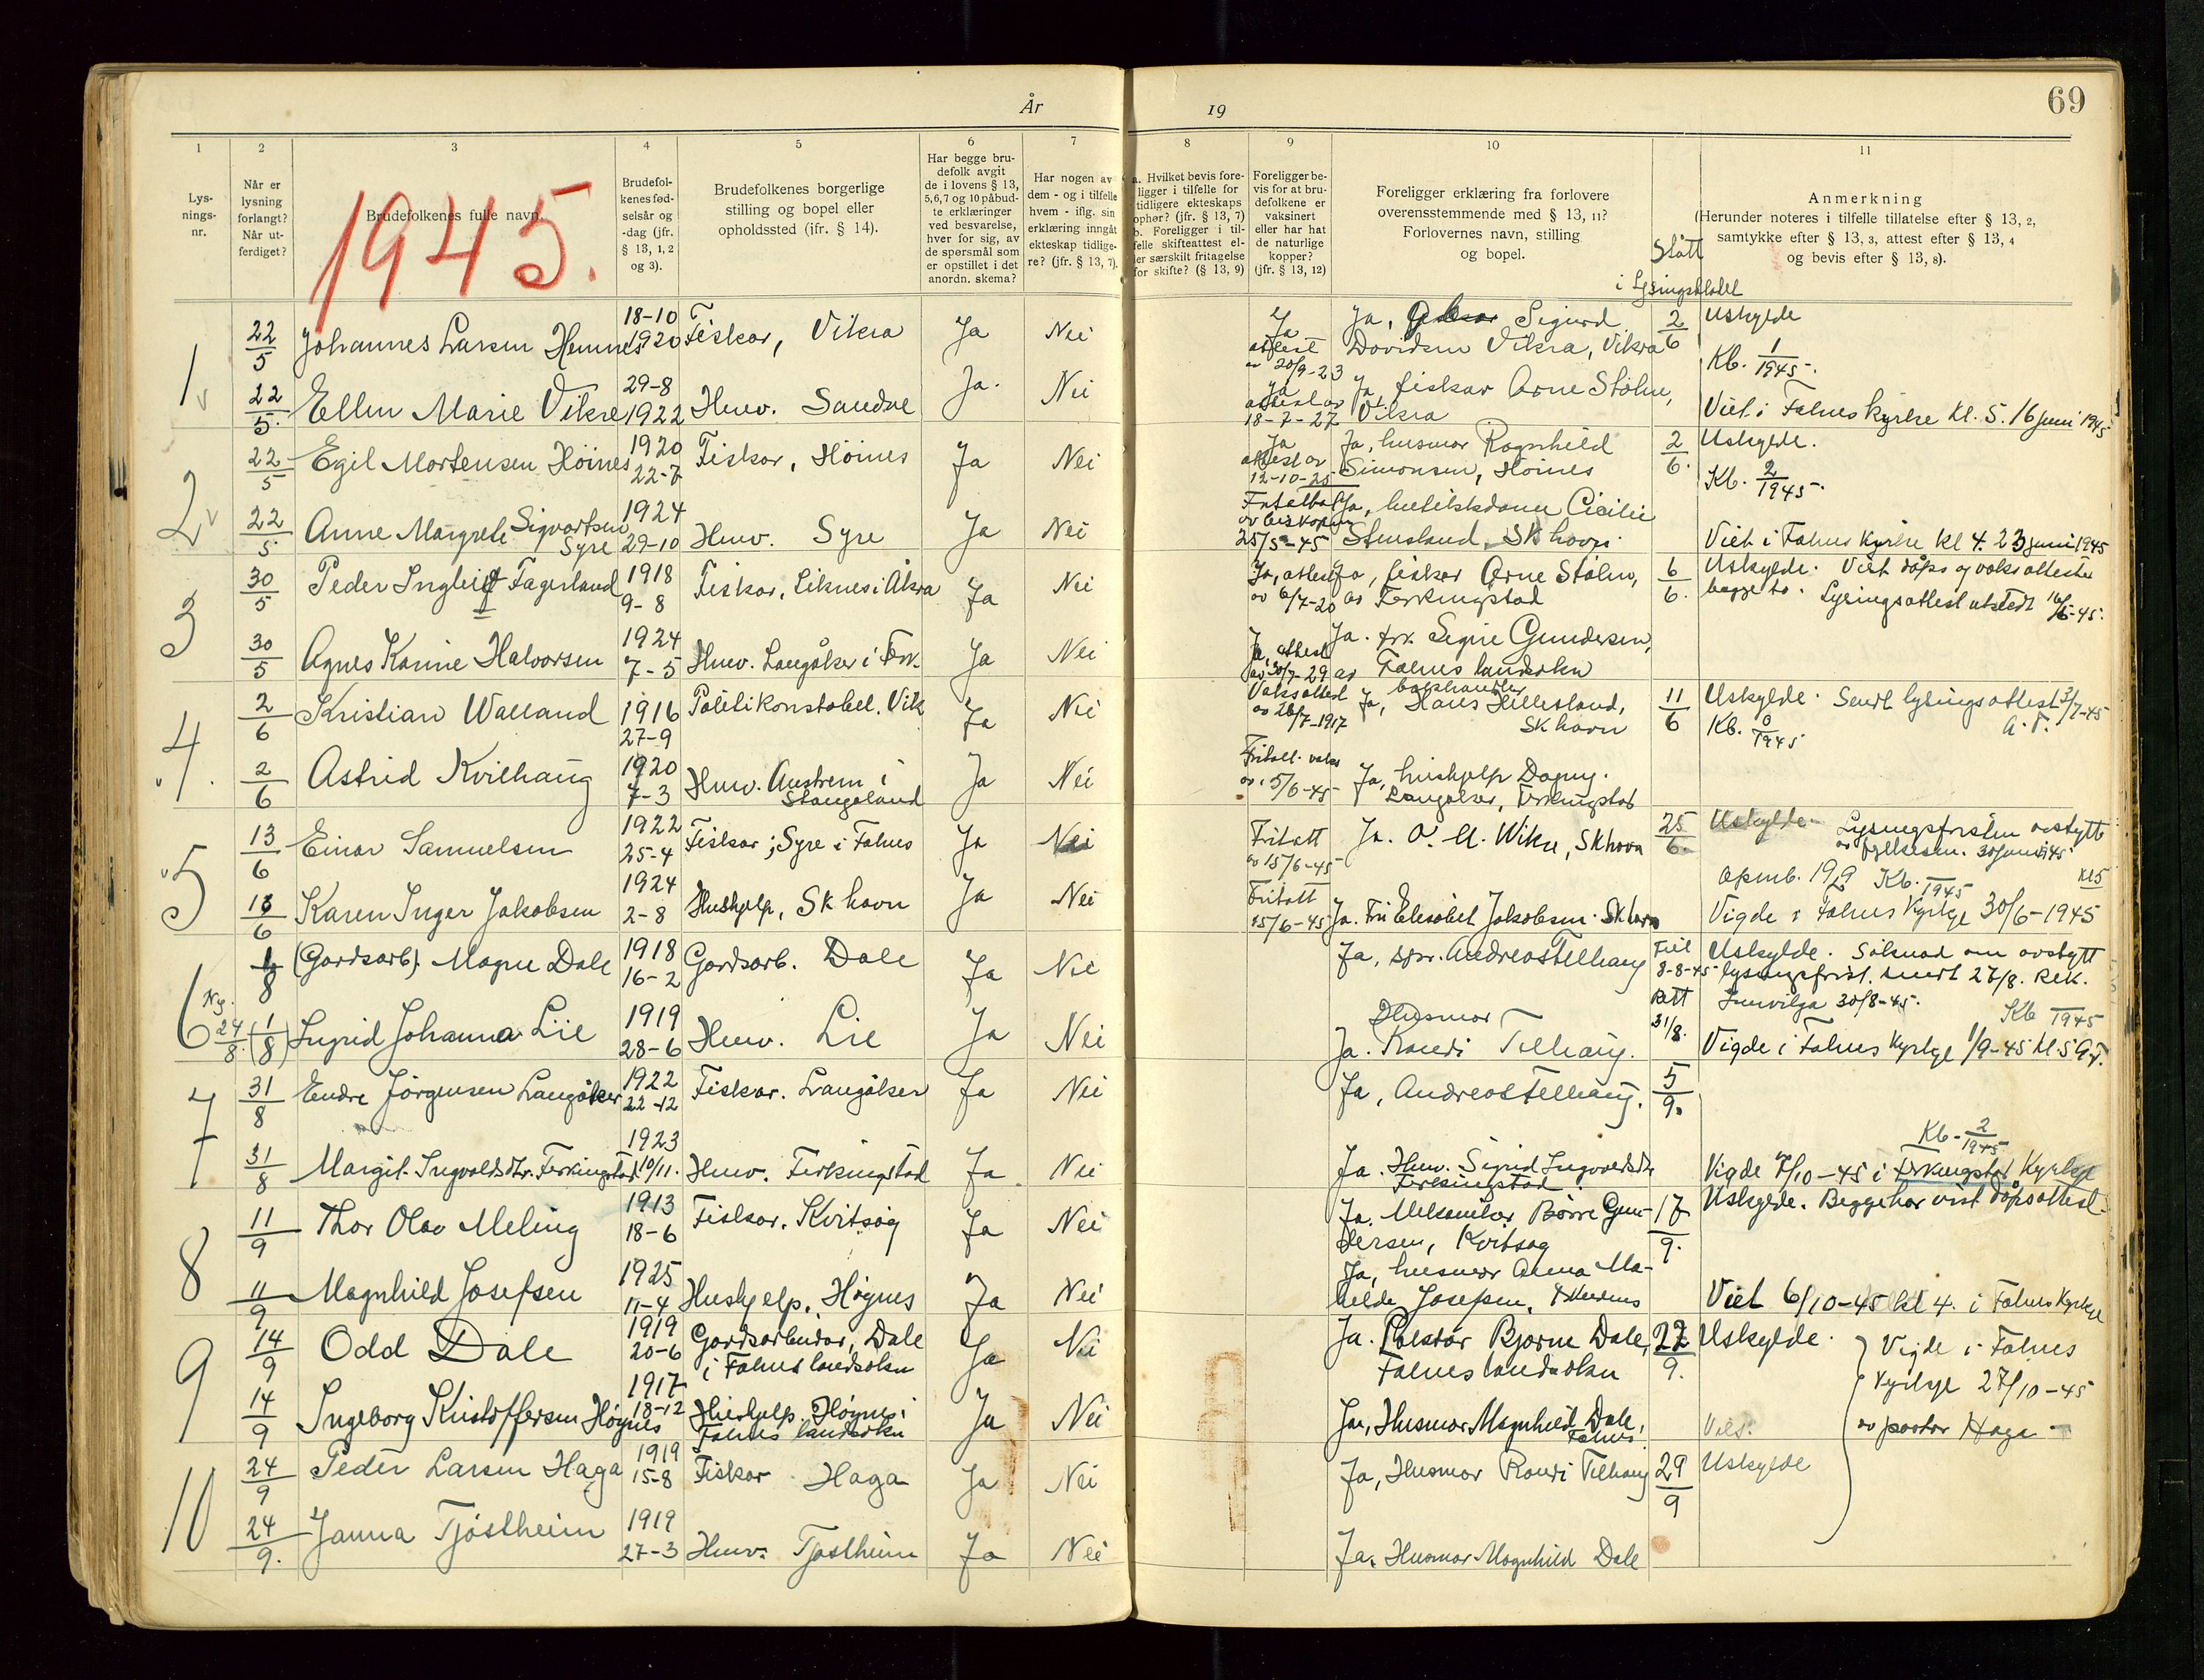 År
19
69
1
2
3
4
5
6
7
8
9
10
11
Lys-
nings-
nr.
Når er
lysning
forlangt?
Når ut-
ferdiget?
Brudefolkenes fulle navn.
1945.
Brudefol-
kenes fød-
selsår og
-dag (jfr.
§ 13, 1, 2
og 3).
Brudefolkenes borgerlige
stilling og bopel eller
opholdssted (jfr. § 14).
Har begge bru-
defolk avgit
de i lovens § 13,
5,6,7 og 10 påbud-
te erklæringer
ved besvarelse,
hver for sig, av
de spørsmål som
er opstillet i det
anordn. skema?
Har nogen av
dem - og i tilfelle
hvem - iflg. sin
erklæring inngått
ekteskap tidlige-
re? (jfr. § 13, 7).
a. Hvilket bevis fore-
ligger i tilfelle for
tidligere ekteskaps
ophør? (jfr. § 13, 7)
b. Foreligger i til-
felle skifteattest el-
ler særskilt fritagelse
for skifte? (§ 13, 9)
Foreligger be-
vis for at bru-
defolkene er
vaksinert
eller har hat
de naturlige
kopper?
(jfr. § 13, 12)
Foreligger erklæring fra forlovere
overensstemmende med § 13, 11?
Forlovernes navn, stilling
og bopel.
Stått
i Lysingsbladet
Anmerkning
(Herunder noteres i tilfelle tillatelse efter § 13, 2,
samtykke efter § 13, 3, attest efter § 13, 4
og bevis efter § 13, 8).
1
22/5 Johannes Larsen Hemnes 18-10 1920 Fiskar, Vikra Ja Nei Ja attest 20/9-23 Ja, Sigurd Davidsen Vikra, Vikra 2/6 Uskylde
Kb. 1/1945.
22/5. Ellen Marie Vikre 29-8 1922 Hmv. Sandve Ja. Nei Ja attest av 18-7-27 Ja fiskar Arne Stølen, Vikra
Viet i Falnes kyrkje kl. 5. 16 juni 1945
2
22/5 Egil Mortensen Höines 1920 22-7 Fiskar, Höines Ja Nei Ja attest av 12-10-25 Ja, husmor Ragnhild Simonsen, Höines 2/6. Uskylde.
Kb. 2/1945.
22/5 Anne Margrete Sigvartsen Syre 1924 29-10 Hmv. Syre Ja Nei av biskopen 25/5-45 Ja, Cicilie Stensland, Sk havn.
Viet i Falnes Kyrkje kl 4. 23 juni 1945
3
30/5 Peder Ingleif Fagerland 1918 9-8 Fiskar, Liknes i Åkra Ja Nei Ja, attest av 6/7-20 Ja, fiskar Arne Stølen, av Ferkingstad 6/6. Uskylde. Vist dåps og vaksattester
begge to. Lysingsattest utstedt 16/6-45.
30/5 Agnes Karine Halvorsen 1924 7-5 Hmv. Langåker i Ferk. Ja Nei Ja, attest av 30/7-29 Ja. frk. Signe Gundersen, av Falnes landsokn
4.
2/6 Kristian Walland 1916 27-9 Politikonstabel. Vik Ja Nei Vaksattest av 28/7-1917 Ja, bokhandler Hans Hillesland, Sk havn 11/6 Uskylde. Sendt lysingsattest 3/7-45
Kb. 0/1945
2/6 Astrid Kvilhaug 1920 7-3 Hmv. Austrem i Stangeland Ja Nei av 5/6-45 Ja, hushjelp Dagny Langåker, Ferkingstad
5
13/6 Einar Samuelsen 1922 25-4 Fiskar; Syre i Falnes Ja Nei Fritatt av 15/6-45 Ja. O. A. Wikre, Sk havn 25/6. Uskylde. Lysingsfristen avstytt
30 juni 45
Kb. 1945 kl 5
13/6 Karen Inger Jakobsen 1924 2-8 Hushjelp, Sk havn Ja Nei Fritatt 15/6-45 Ja. Fru Elisabet Jakobsen. Sk havn
Vigde i Falnes Kyrkje 30/6-1945
6
1/8 (Gardsarb). Magne Dale 1918 16-2 Gardsarb. Dale Ja Nei Ja, Andreas Tellhaug Feil 8-8-45 Uskylde. Søknad om avstytt
lysingsfrist. sendt 27/8. Rek.
Rett 31/8. Innvilga 30/8-45.
Kb 1945
Ny. 24/8. (1/8) Ingrid Johanna Lie 1919 28-6 Hmv. Lie Ja Nei Ja. Husmor Randi Tellhaug.
Vigde i Falnes kyrkje 1/9-45 kl. 5
7
31/8 Endre Jörgensen Langåker 1922 22-12 Fiskar. Langåker Ja Nei Ja, Andreas Tellhaug. 5/9.
Kb. 2/1945
31/8 Margit Ingvaldsdtr. Ferkingstad 1923 10/11. Hmv. Ferkingstad Ja Nei Ja. Hmv. Sigrid Ingvaldsdtr Ferkingstad.
Vigde 7/10-45 i Ferkingstad Kyrkje
8
11/9 Thor Olav Meling 1913 18-6 Fiskar. Kvitsøy Ja Nei Ja. Mekanikar Børre Gundersen, Kvitsøy 17/9. Uskylde. Begge har vist dåpsattest.
11/9 Magnhild Josefsen 1925 11-4 Hushjelp. Høynes Ja Nei Ja, husmor Anna Mathilde Josefsen,
Viet 6/10-45 kl 4. i Falnes Kyrkje
9
14/9 Odd Dale 1919 20-6 Gardsarbeidar, Dale i Falnes landsokn Ja Nei Ja. Bjarne Dale, Falnes landsokn 22/9. Uskylde.
Vigde i Falnes
Kyrkje 27/10-45
av pastor Haga
14/9 Ingeborg Kristoffersen Høynes 1917 18-12 Hushjelp. Høynes i Falnes landsokn Ja Nei Ja, Husmor Magnhild Dale, Falnes
10
24/9 Peder Larsen Haga 1919 15-8 Fiskar Haga Ja Nei Ja, Husmor Randi Tellhaug 29/9 Uskylde
24/9. Janna Tjöstheim 1919 27-3 Hmv. Tjøstheim Ja Nei Ja. Husmor Magnhild Dale